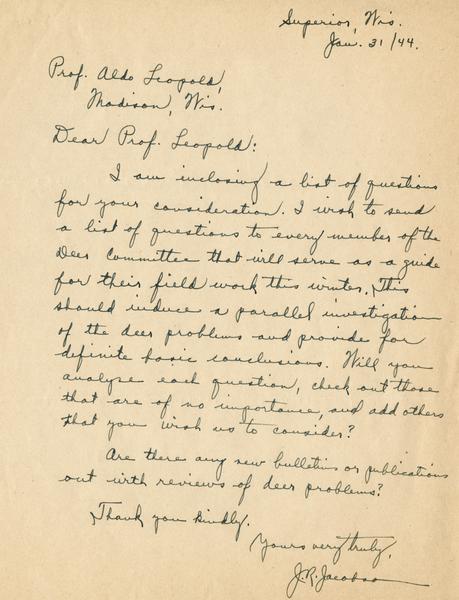 Superior, Wis.
Jan. 31/44.
Prof. Aldo Leopold,
Madison, Wis.
Dear Prof. Leopold:
I am inclosing a list of questions
for your consideration. I wish to send
a list of questions to every member of the
Deer Committee that will serve as a guide
for their field work this winter. This
should induce a parallel investigation
of the deer problems and provide for
definite basic conclusions. Will you
analyze each question, check out those
that are of no importance, and add others
that you wish us to consider?
Are there any new bulletins or publications
out with reviews of deer problems?
Thank you kindly.
Yours very truly,
J.R. Jacobson